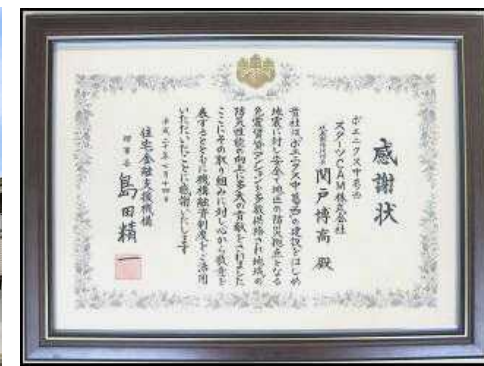 感謝状
ポエニクス中葛西
スターツCAM株式会社
代表取締役社長 関戸博高 殿
貴社はポエニクス中葛西の建設をはじめ
地震に対し安全で地区の防災拠点となる
免震賃貸マンションを多数供給され地域の
防災性能の向上に多大の貢献をされました
ここにその取り組みに対し心から敬意を
表するとともに機構融資制度をご活用
いただいたことに感謝いたします
平成二十年七月十四日
住宅金融支援機構
理事長 島田精一